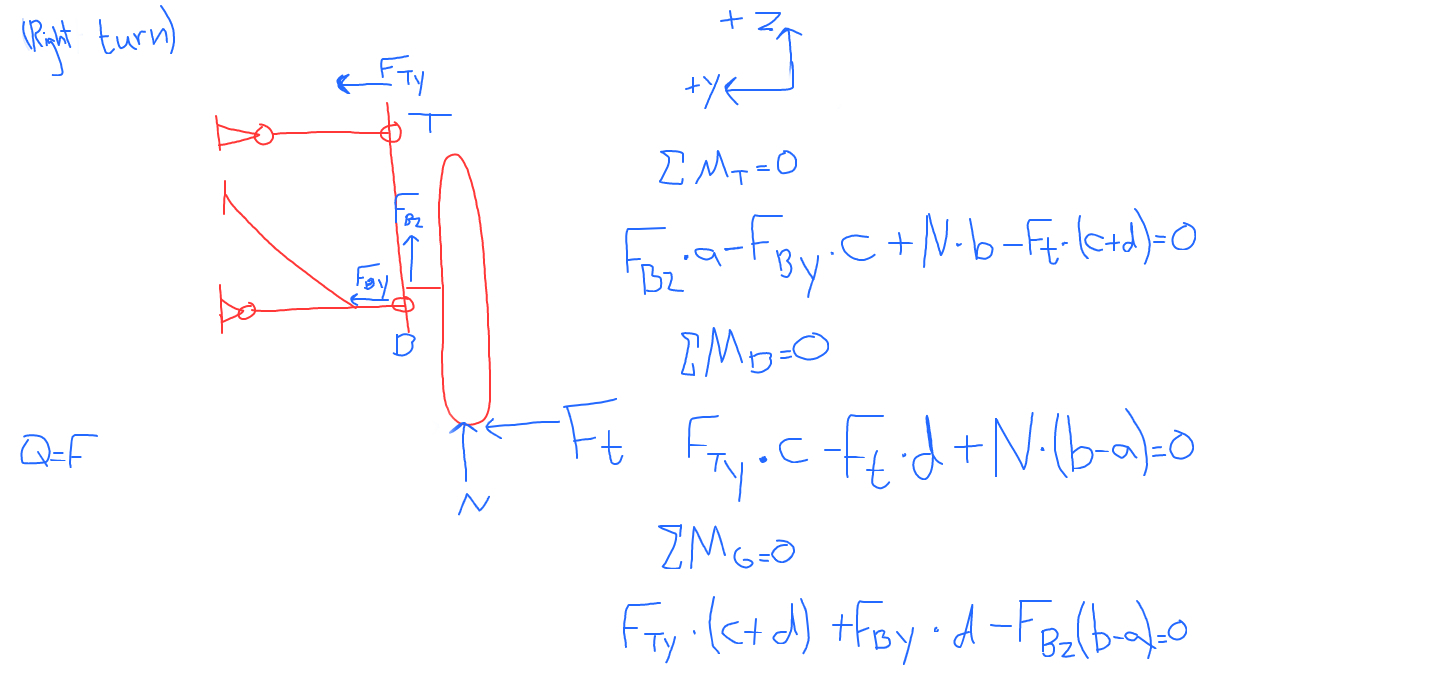 (Right turn)
+ Z
+Y
F_Ty
T
F_Bz
F_By
B
F_t
N
Q=F
Σ M_T = 0
F_Bz · a - F_By · c + N · b - F_t · (c+d) = 0
Σ M_B = 0
F_Ty · c - F_t · d + N · (b-a) = 0
Σ M_G = 0
F_Ty · (c+d) + F_By · d - F_Bz (b-a) = 0